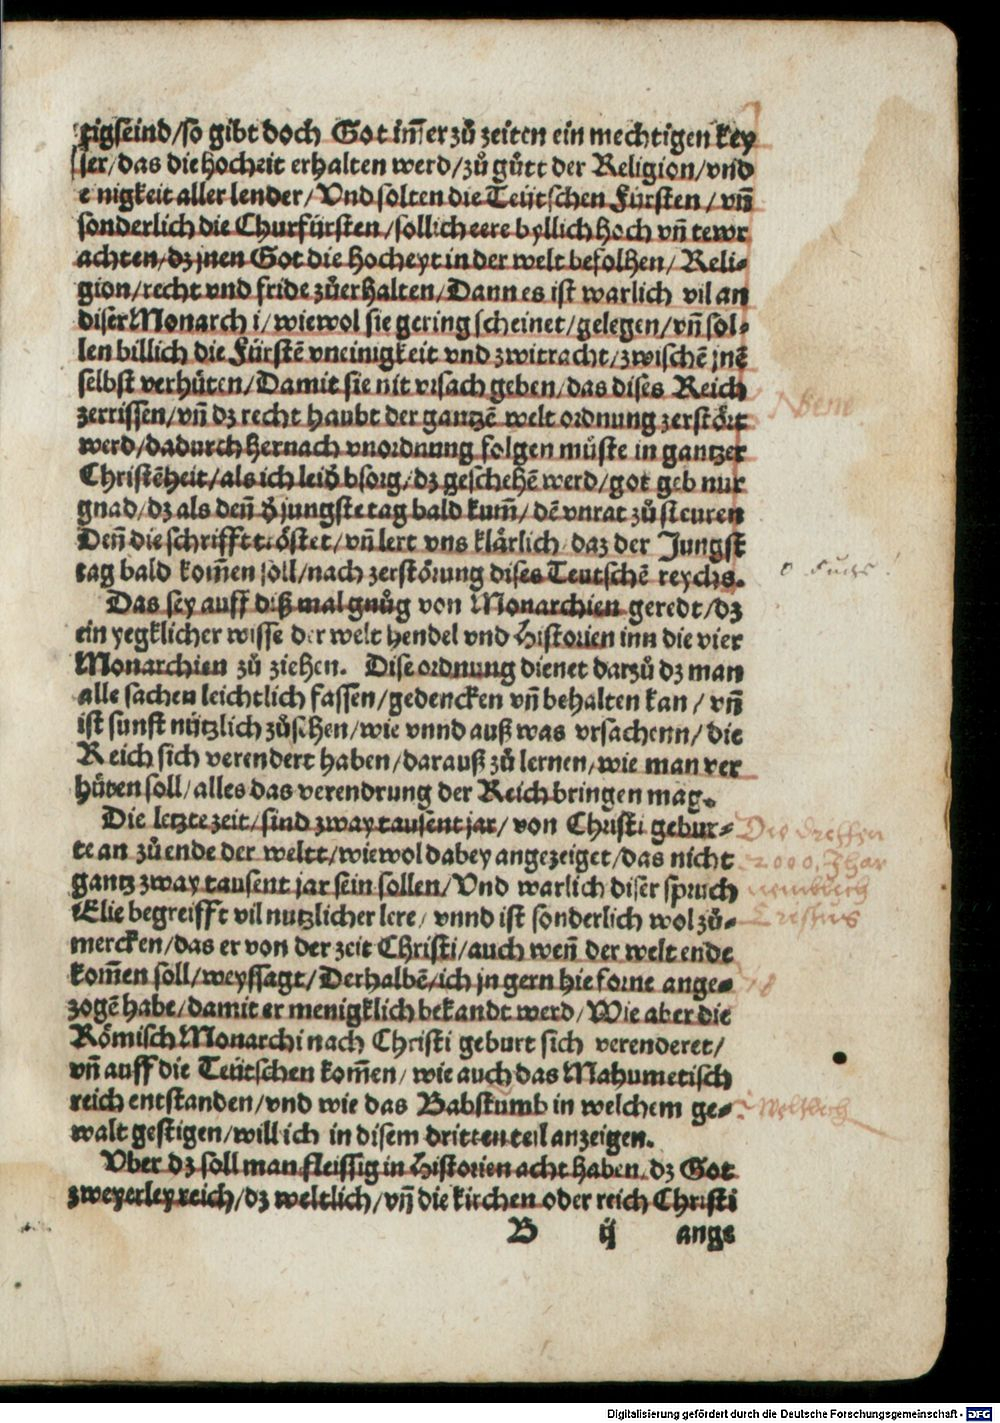 tigseind/so gibt doch Got im̄er zů zeiten ein mechtigen key
ser/das die hocheit erhalten werd/zů gůtt der Religion/vnd
enigkeit aller lender/Vnd solten die Teütschen Fürsten/vn̄
sonderlich die Churfürsten/sollich eere byllich hoch vn̄ tewr
achten/dz jnen Got die hocheyt in der welt befolhen/Reli-
gion/recht vnd fride zůerhalten/Dann es ist warlich vil an
diser Monarchi/wiewol sie gering scheinet/gelegen/vn̄ sol-
len billich die Fürstē vneinigkeit vnd zwitracht/zwischē jnē
selbst verhüten/Damit sie nit vrsach geben/das dises Reich
zerrissen/vn̄ dz recht haubt der gantzē welt ordnung zerstört
werd/dadurch hernach vnordnung folgen müste in gantzer
Christēheit/als ich leid̕ bsorg/dz geschehē werd/got geb nur
gnad/dz als den̄ d̕ jungste tag bald kum̄/dē vnrat zů steuren
Den̄ die schrifft tröstet/vn̄ lert vns klärlich daz der Jungst
tag bald kom̄en soll/nach zerstörung dises Teutschē reychs.
Das sey auff diß mal gnůg von Monarchien geredt/dz
ein yegklicher wisse der welt hendel vnd Historien inn die vier
Monarchien zů ziehen. Dise ordnung dienet darzů dz man
alle sachen leichtlich fassen/gedencken vn̄ behalten kan/vn̄
ist sunst nützlich zůsehen/wie vnnd auß was vrsachenn/die
Reich sich verendert haben/darauß zů lernen/wie man ver
hüten soll/alles das verendrung der Reich bringen mag.
Die letzte zeit/sind zway tausent jar/von Christi gebur-
te an zů ende der weltt/wiewol dabey angezeiget/das nicht
gantz zway tausent jar sein sollen/Vnd warlich diser spruch
Elie begreifft vil nutzlicher lere/vnnd ist sonderlich wol zů-
mercken/das er von der zeit Christi/auch wen̄ der welt ende
kom̄en soll/weyssagt/Derhalbē/ich jn gern hie forne ange-
zogē habe/damit er menigklich bekandt werd/Wie aber die
Römisch Monarchi nach Christi geburt sich verenderet/
vn̄ auff die Teütschen kom̄en/wie auch das Mahumetisch
reich entstanden/vnd wie das Babstumb in welchem ge-
walt gestigen/will ich in disem dritten teil anzeigen.
Vber dz soll man fleissig in Historien acht haben, dz Got
zweyerley reich/dz weltlich/vn̄ die kirchen oder reich Christi
B ij ange
Die
2000. Jhar
Digitalisierung gefördert durch die Deutsche Forschungsgemeinschaft - DFG